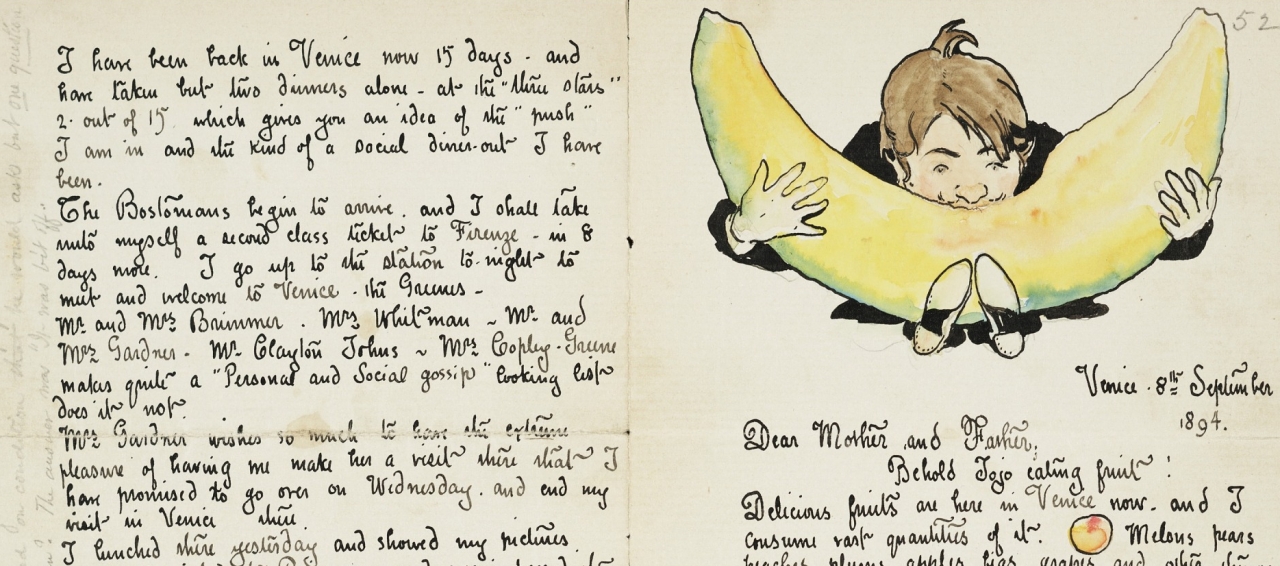 I have been back in Venice now 15 days - and
have taken but two dinners alone - at the "three stars"
2. out of 15 which gives you an idea of the "push"
I am in and the kind of a social diner-out I have
been.
The Bostonians begin to arrive. and I shall take
unto myself a second class ticket to Firenze - in 8
days more. I go up to the station to-night to
meet and welcome to Venice - the Greenes -
Mr. and Mrs Brimmer. Mrs Whitman ~ Mr. and
Mrs Gardner - Mr. Clayton Johns ~ Mrs Copley-Greene
makes quite a "Personal and Social gossip" looking list
does it not.
Mrs Gardner wishes so much to have the extreme
pleasure of having me make her a visit there that I
have promised to go over on Wednesday. and end my
visit in Venice there.
I lunched there yesterday and showed my pictures.
52
Venice. 8th September
1894.
Dear Mother and Father,
Behold Jojo eating fruit!
Delicious fruits are here in Venice now. and I
consume vast quantities of it. Melons pears
peaches plums apples figs grapes and other
he would asks but one question
The answer was "I was bit off.